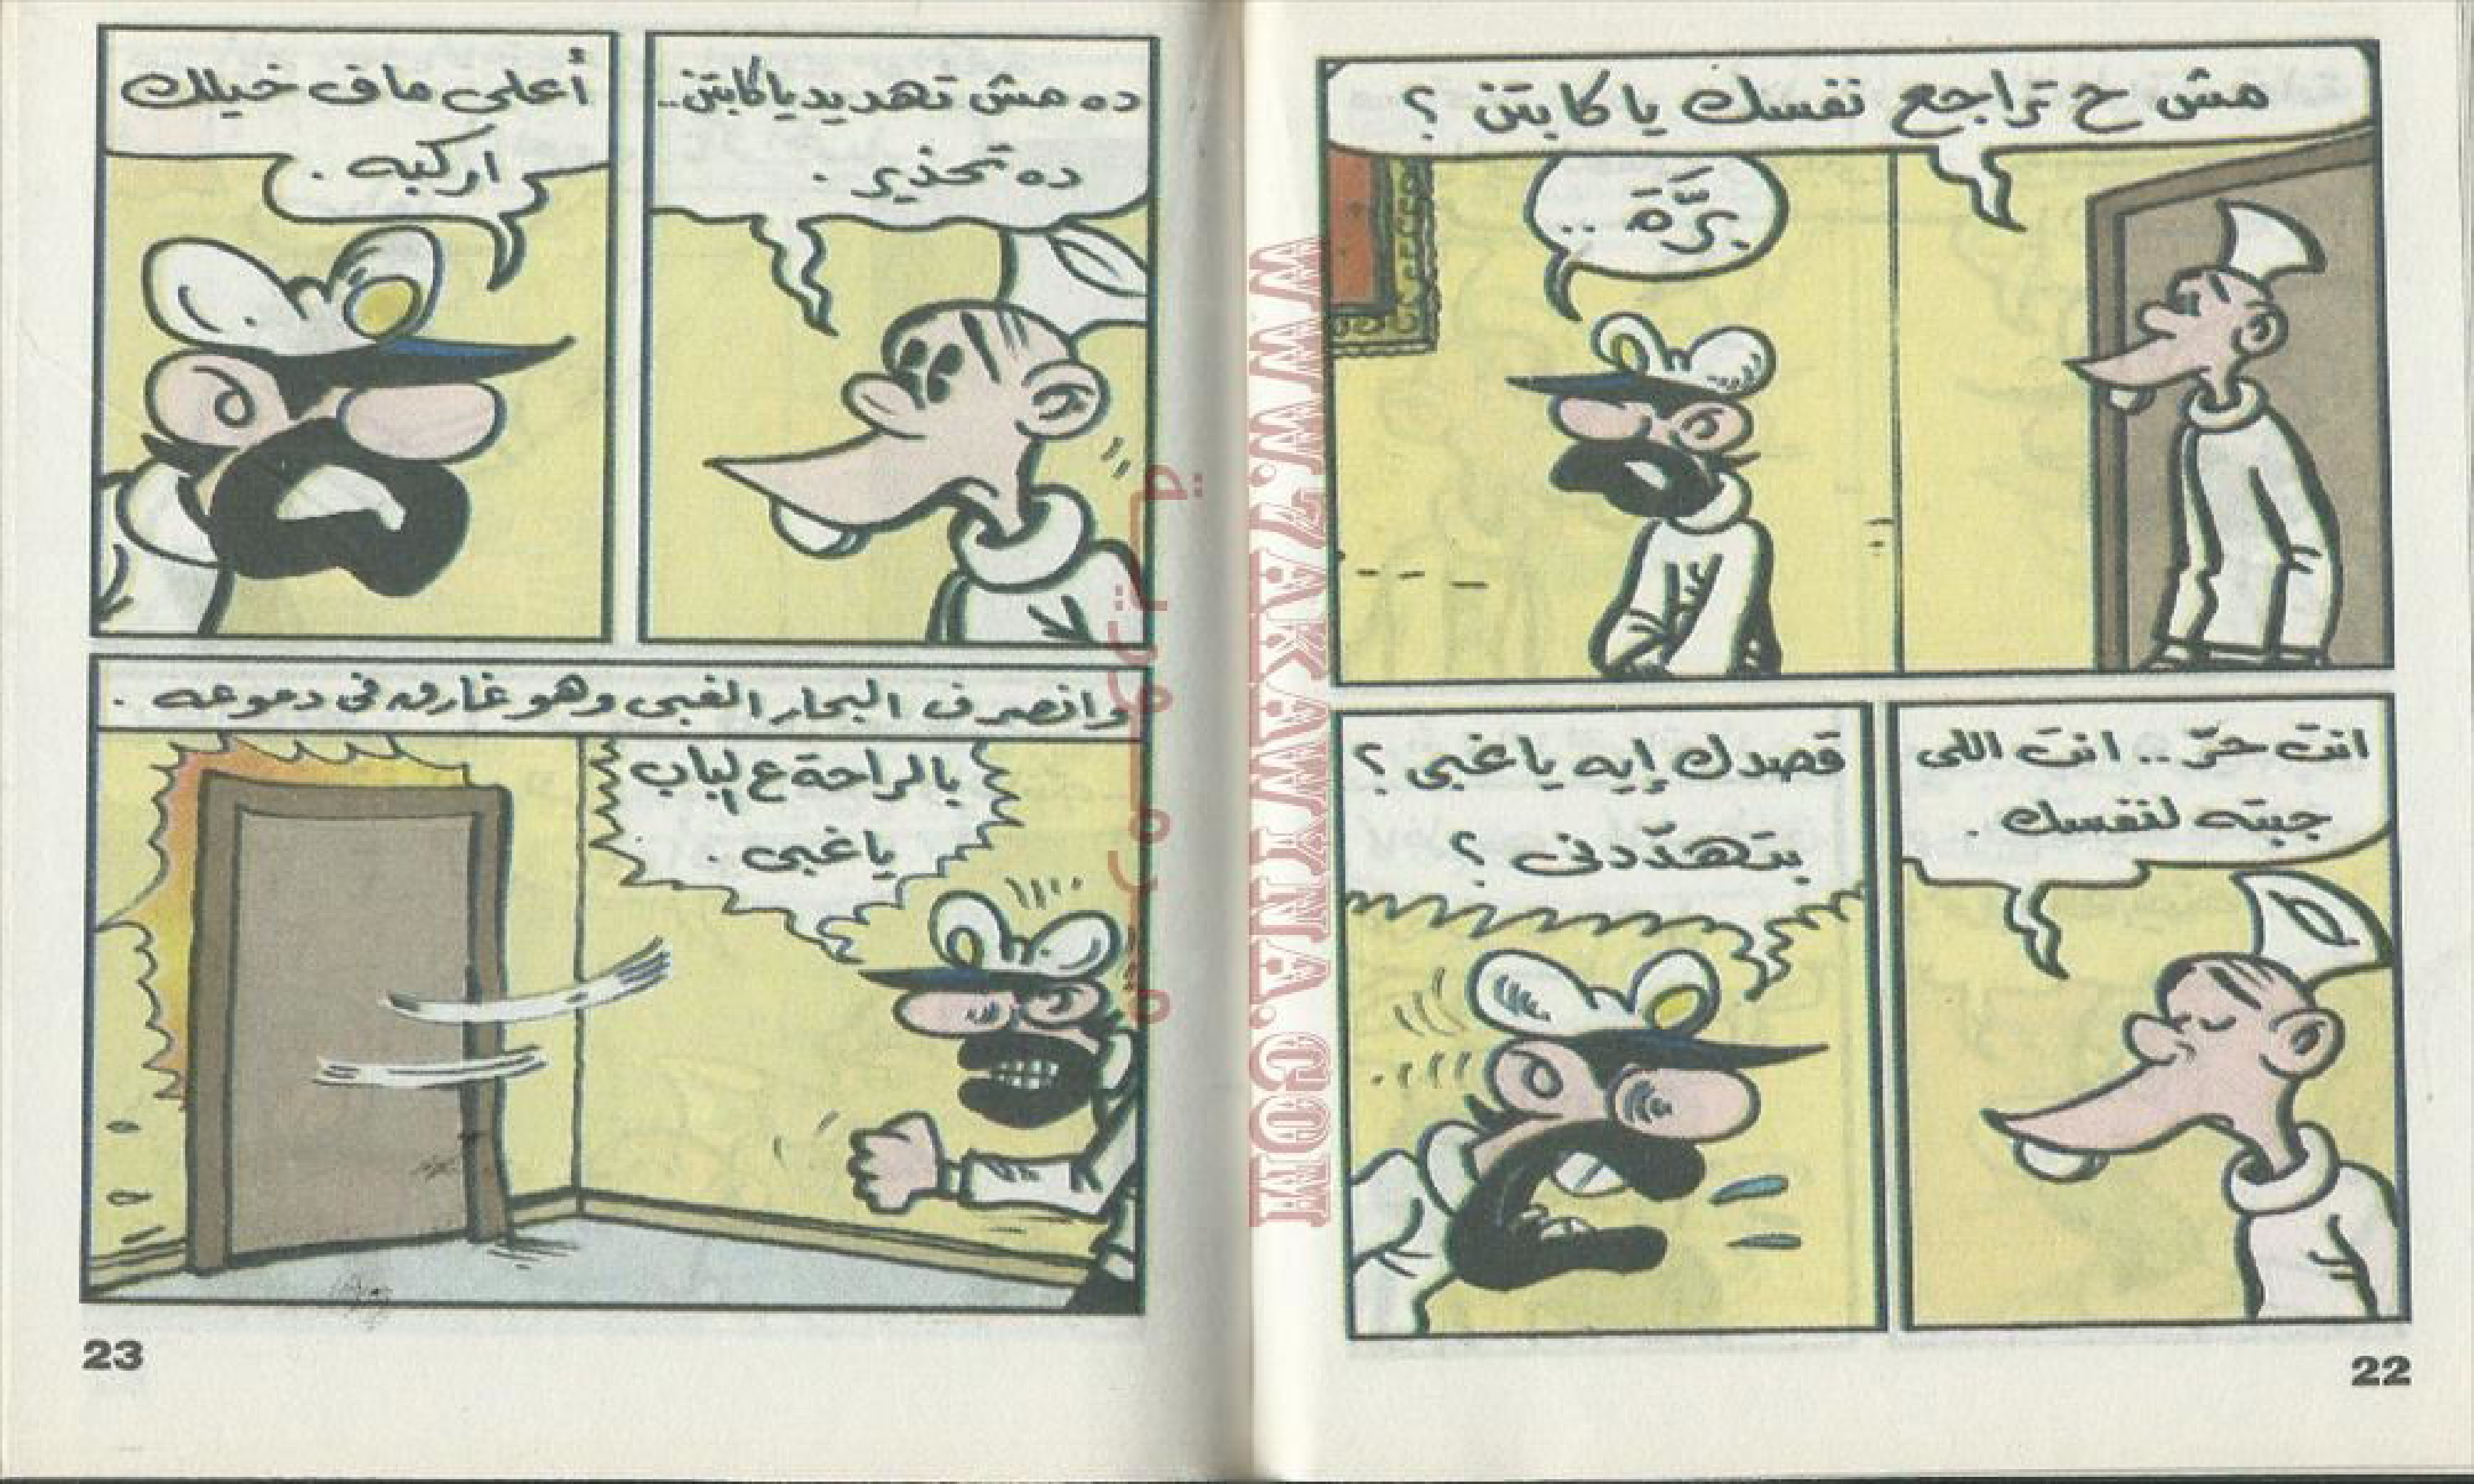 مش ح تراجع نفسك يا كابتن ؟
برَّه ..
انت حرّ .. انت اللى
جبته لنفسك .
قصدك إيه يا غبى ؟
بتهدّدنى ؟
22
ده مش تهديد يا كابتن ..
ده تحذير .
أعلى ما ف خيلك
اركبه .
وانصرف البحار الغبى وهو غارق فى دموعه .
بالراحة ع الباب
يا غبى .
23